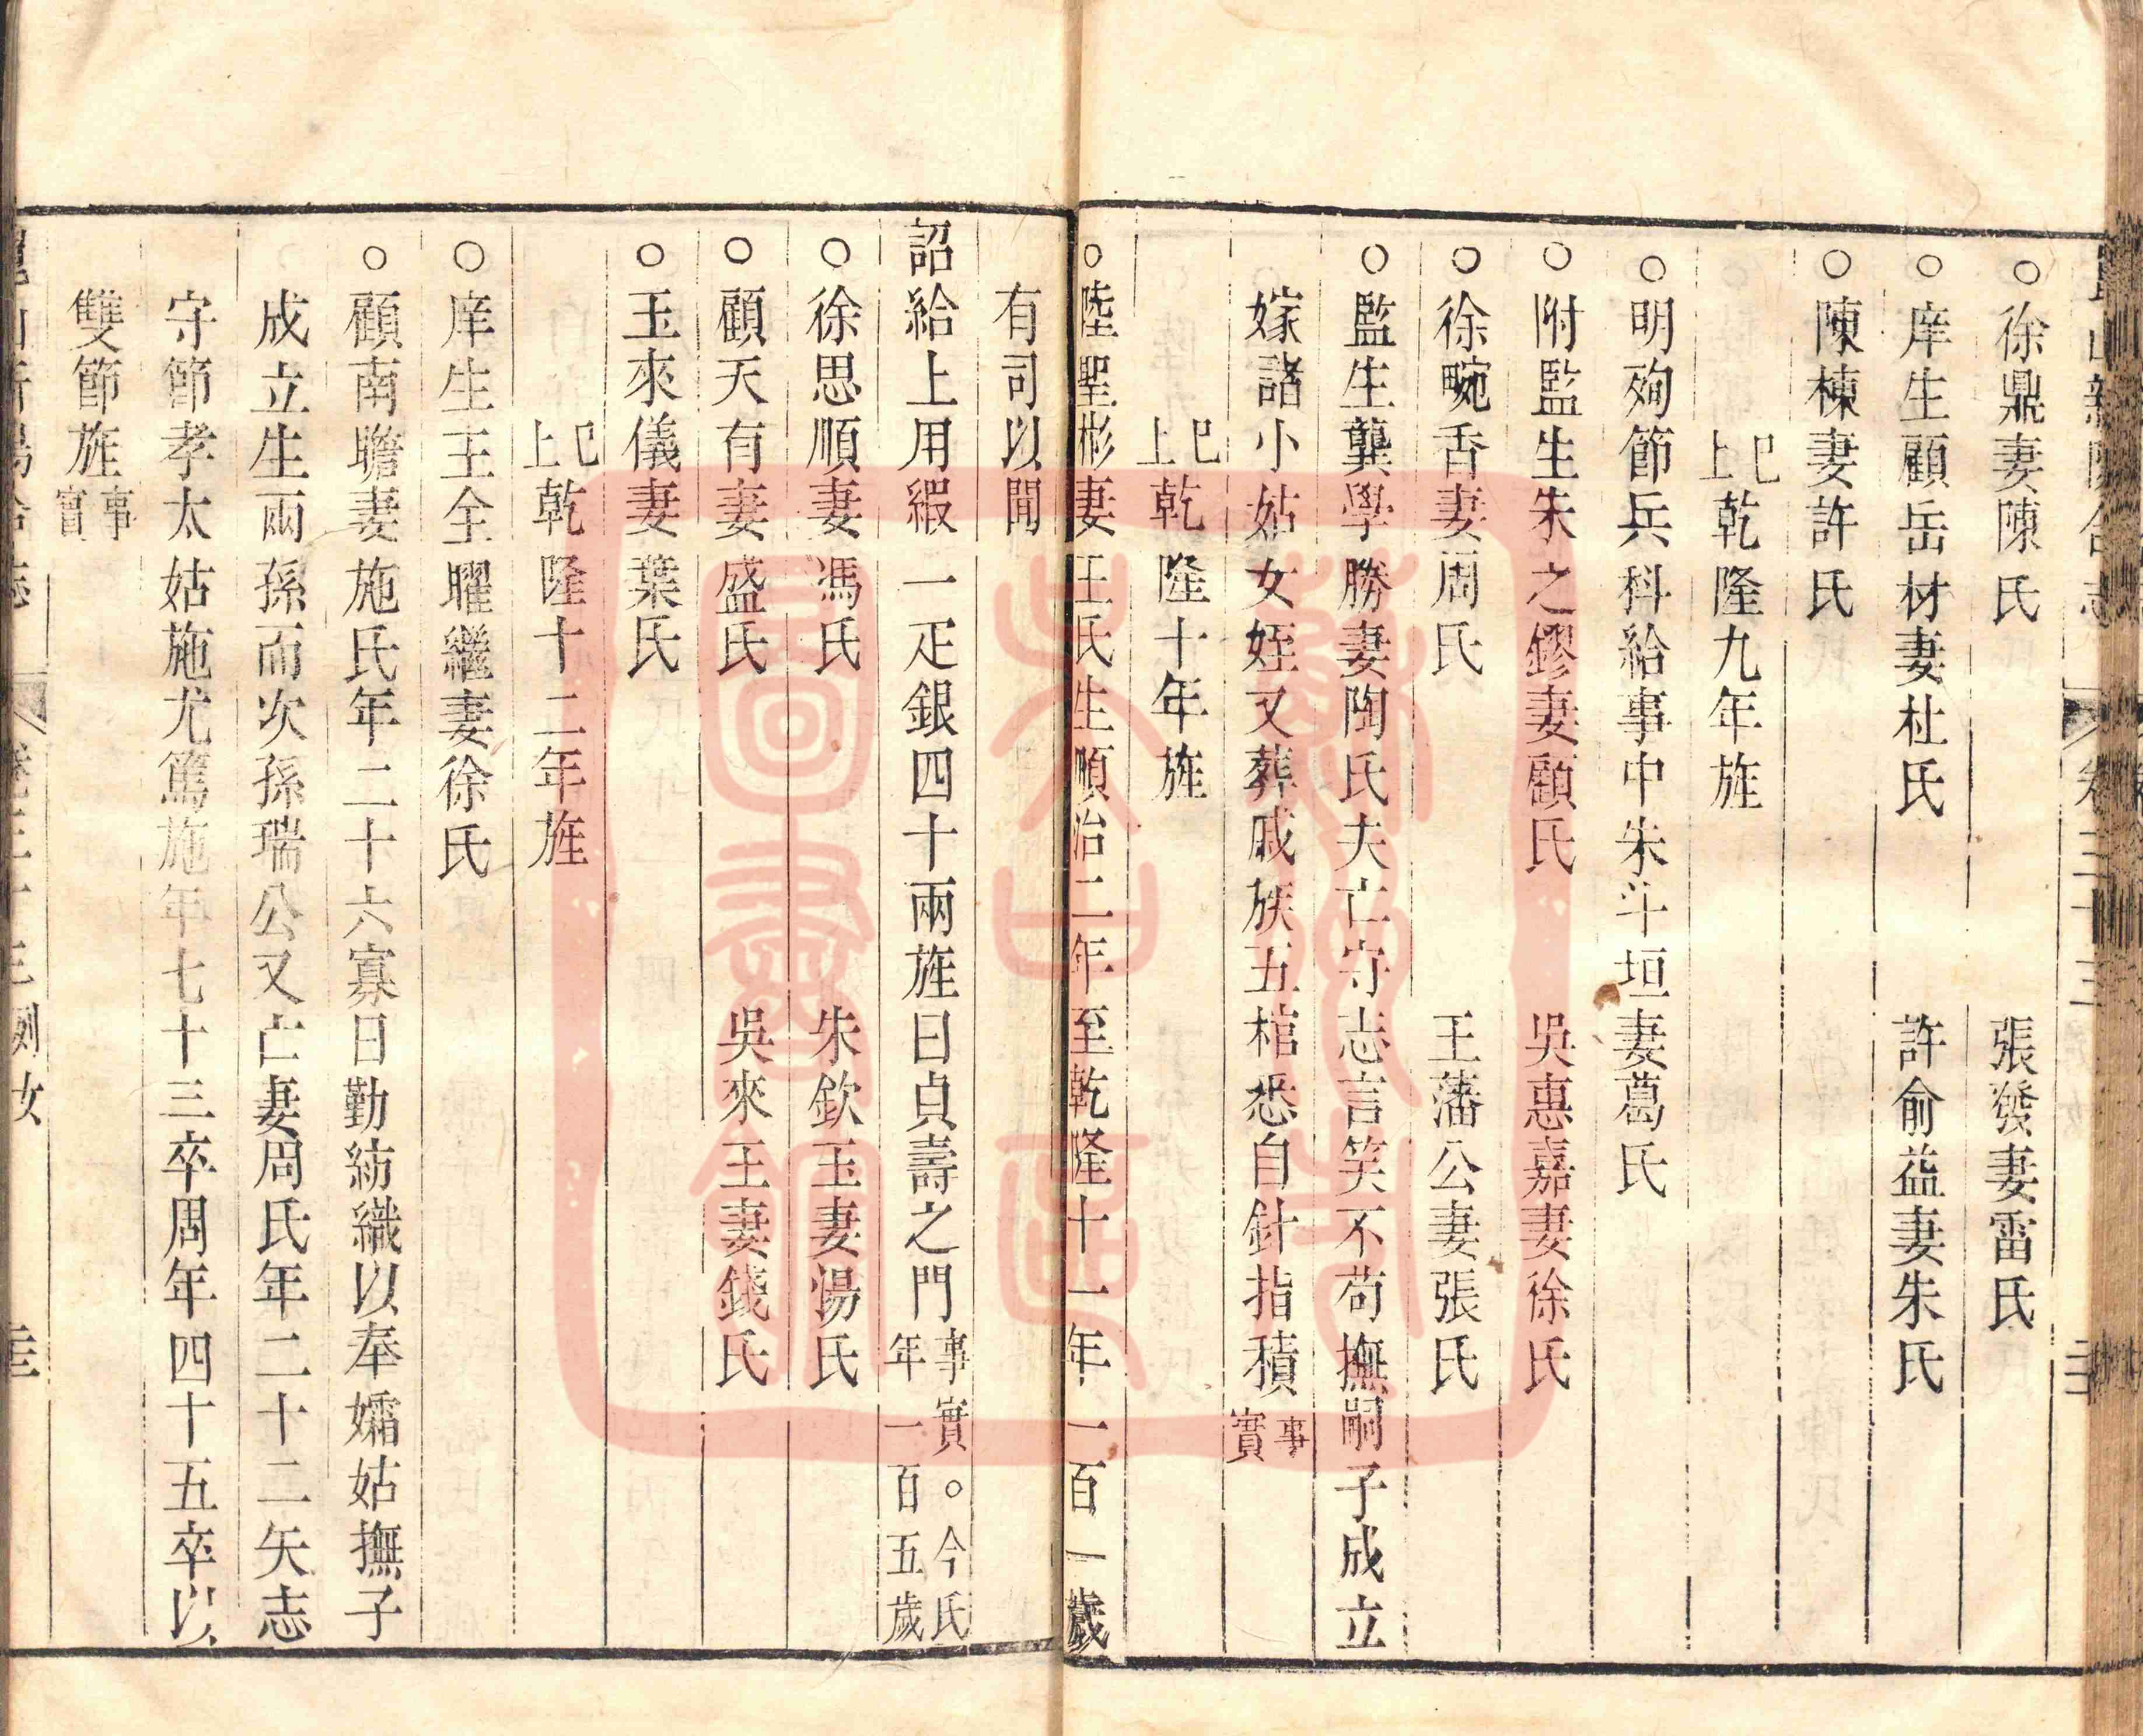 ○徐鼎妻陳氏　張發妻雷氏
○庠生顧岳材妻杜氏　許俞益妻朱氏
○陳棟妻許氏
已上乾隆九年旌
○明殉節兵科給事中朱斗垣妻葛氏
○附監生朱之鏐妻顧氏　吳惠嘉妻徐氏
○徐畹香妻周氏　王藩公妻張氏
○監生龔學勝妻陶氏夫亡守志言笑不苟撫嗣子成立
嫁諸小姑女姪又葬戚族五棺悉自針指積事實
已上乾隆十年旌
○陸聖彬妻王氏生順治二年至乾隆十一年一百一歲
有司以聞
詔給上用緞一疋銀四十兩旌曰貞壽之門事實○今氏年一百五歲
○徐思順妻馮氏　朱欽玉妻湯氏
○顧天有妻盛氏　吳來王妻錢氏
○玉來儀妻葉氏
已上乾隆十二年旌
○庠生王全曜繼妻徐氏
○顧南瞻妻施氏年二十六寡日勤紡織以奉孀姑撫子
成立生兩孫而次孫瑞公又亡妻周氏年二十二矢志
守節孝太姑施尤篤施年七十三卒周年四十五卒以
雙節旌事實
卷三十三列女